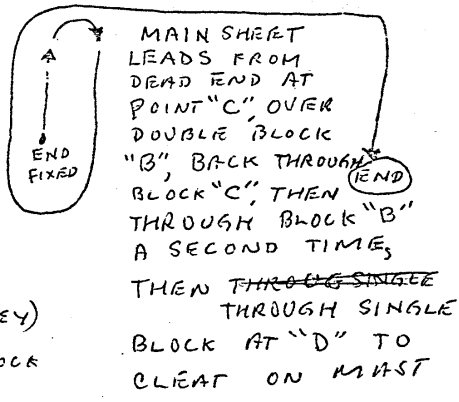 MAIN SHEET
LEADS FROM
DEAD END AT
POINT "C", OVER
DOUBLE BLOCK
"B", BACK THROUGH
BLOCK "C", THEN
THROUGH BLOCK "B"
A SECOND TIME,
THEN THROUG SINGLE
THROUGH SINGLE
BLOCK AT "D" TO
CLEAT ON MAST
END
FIXED
END
EY)
OCK